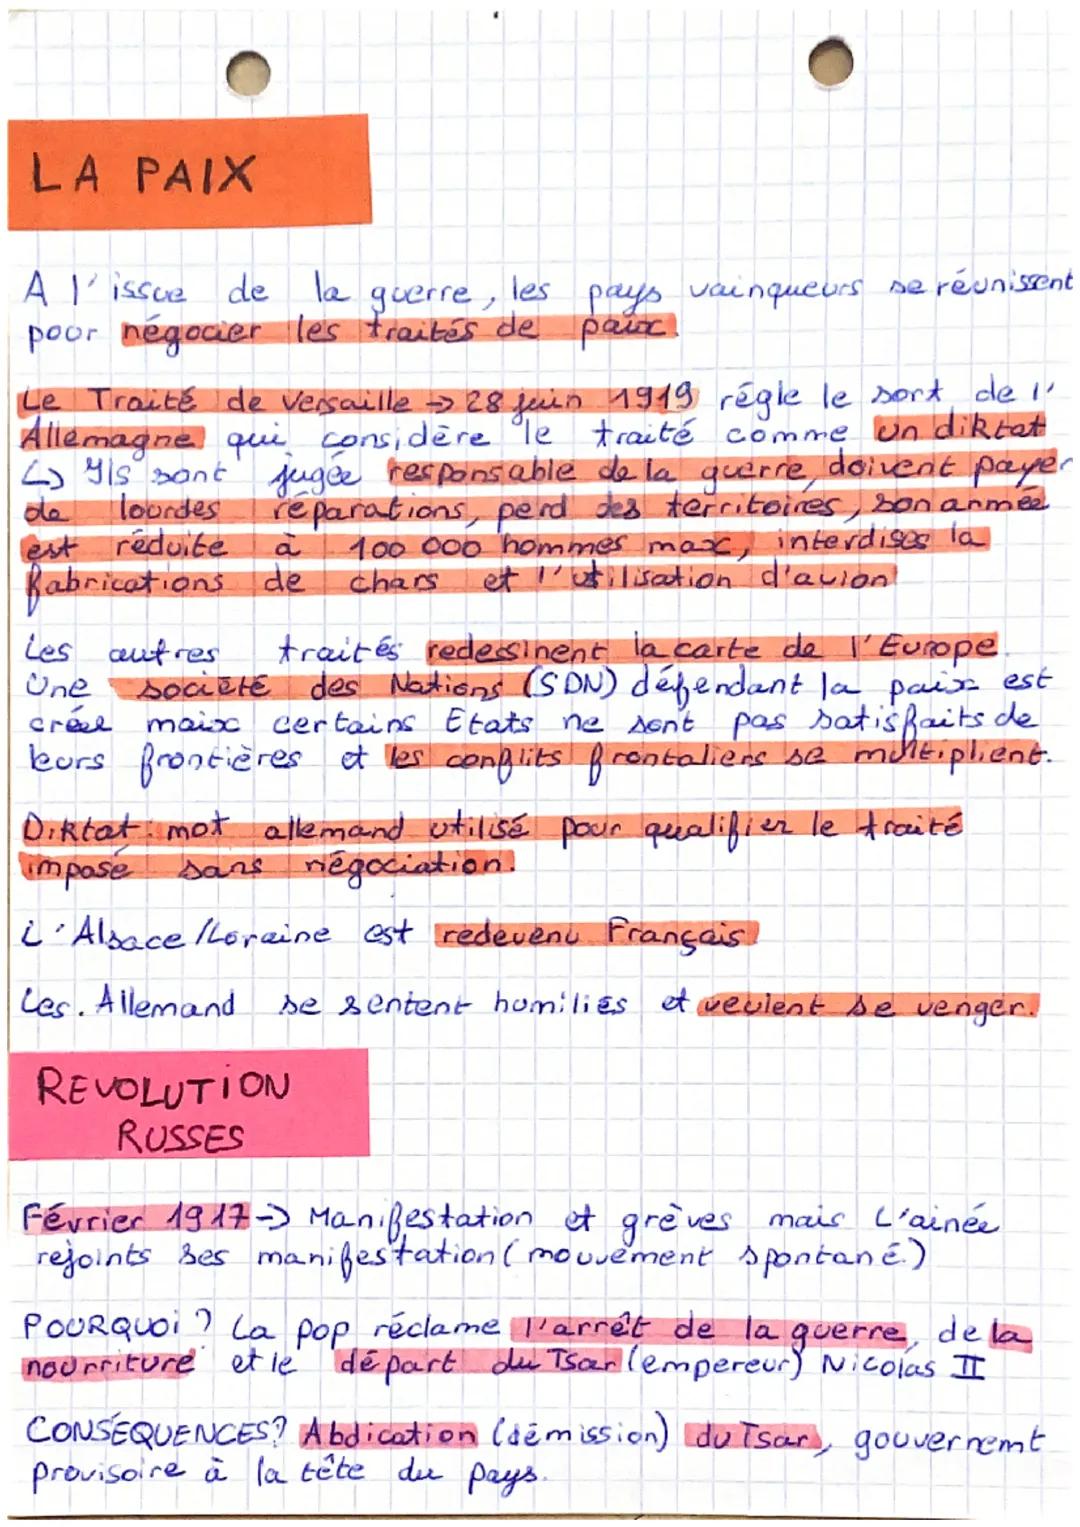 LA PAIX
A l'issue de la guerre, les pays vainqueurs se réunissent
pour négocier les traités de paix.
Le Traité de Versaille → 28 juin 1919 régle le sort de l'
Allemagne qui considère le traité comme un diktat
↳ Ils sont jugée responsable de la guerre, doivent payer
de lourdes réparations, perd des territoires, son armée
est réduite à 100 000 hommes max, interdises la
fabrications de chars et l'utilisation d'avion
Les autres traités redessinent la carte de l'Europe.
Une société des Nations (SDN) défendant la paix est
créé maix certains Etats ne sont pas satisfaits de
leurs frontières et les conflits frontaliers se multiplient.
Diktat : mot allemand utilisé pour qualifier le traité
imposé sans négociation.
L'Alsace/Loraine est redevenu Français
Les Allemand se sentent humiliés et veulent se venger.
REVOLUTION
RUSSES
Février 1917 → Manifestation et grèves mais L'ainée
rejoints ses manifestation (mouvement spontané.)
POURQUOi ? La pop réclame l'arrêt de la guerre, de la
nourriture et le départ du Tsar (empereur) Nicolas II
CONSÉQUENCES? Abdication (démission) du Tsar, gouvernemt
provisoire à la tête du pays.